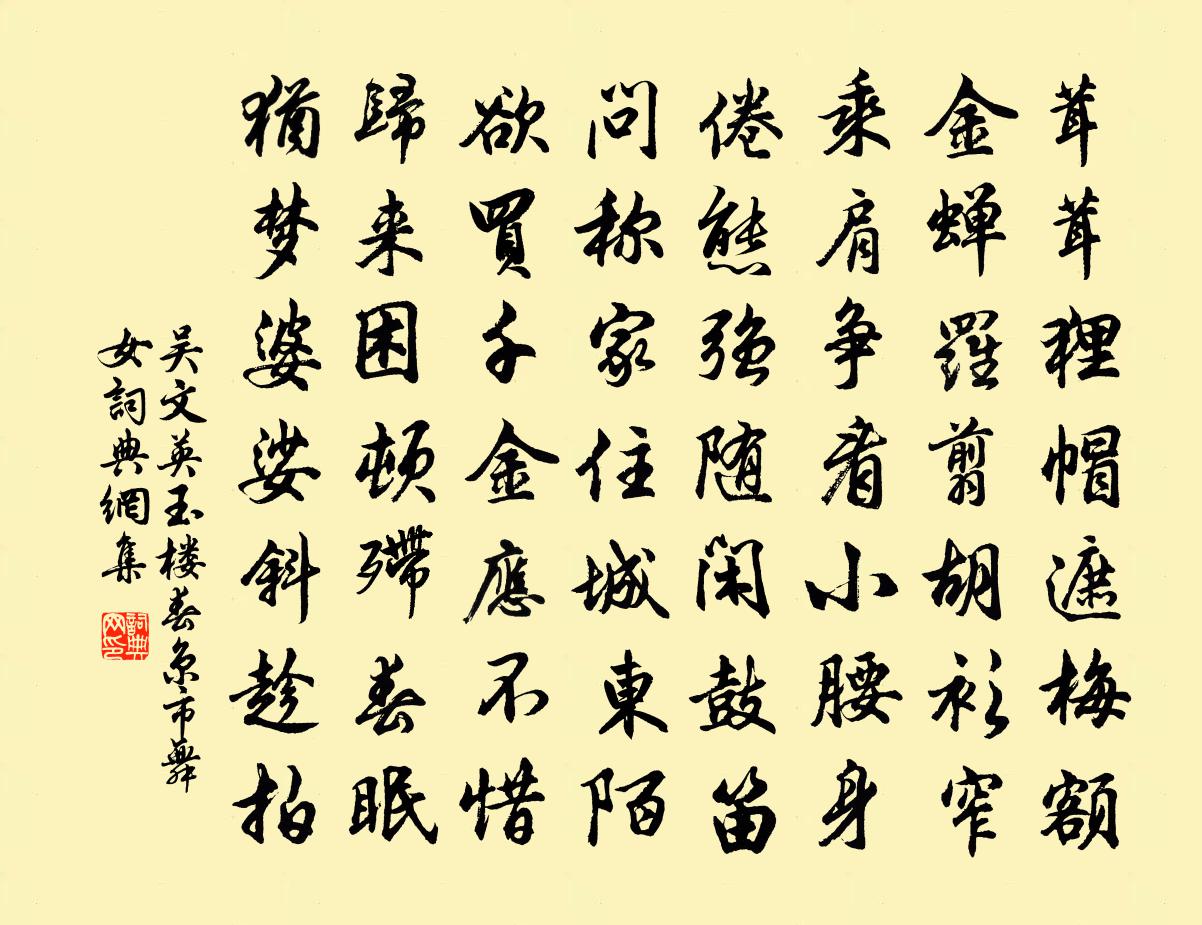 茸茸狸帽遮梅額
金蝉羅剪胡衫窄
乘肩争看小腰身
倦態强随闲鼓笛
问称家住城東陌
欲買千金應不惜
歸来困顿殢春眠
猶梦婆娑斜趁拍
吴文英玉楼春京市舞
女詞典網集
詞典
网印